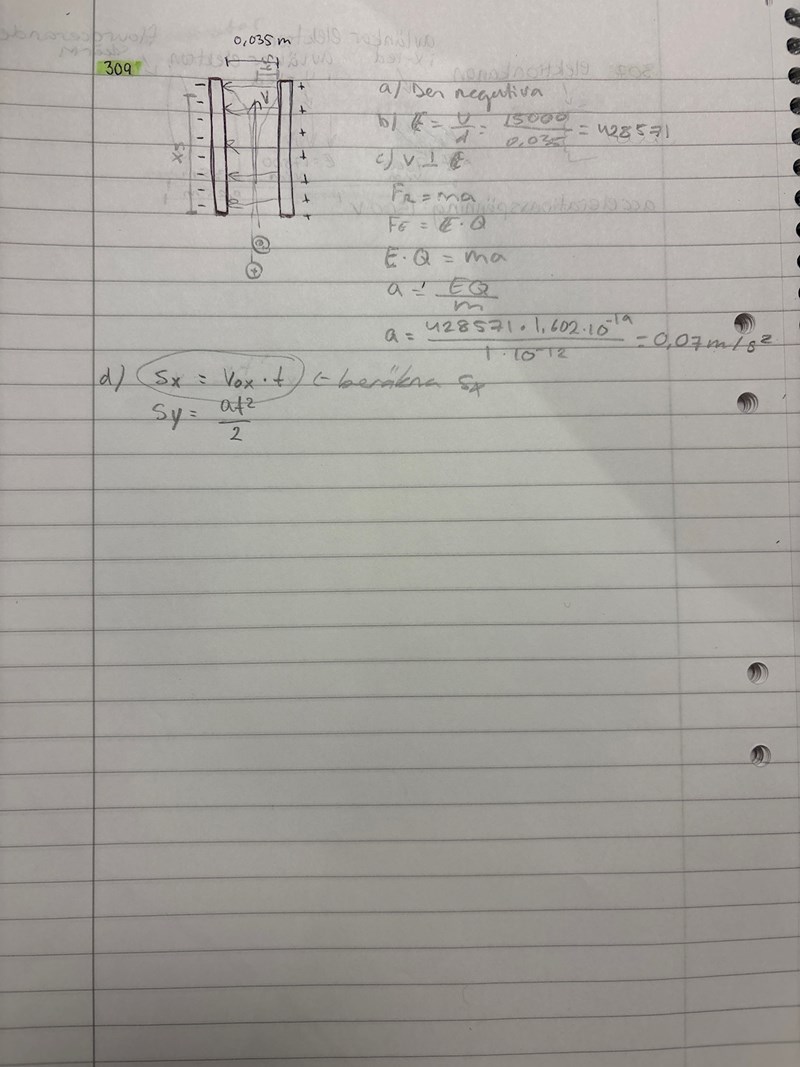 0,035 m
309
a) Den negativa
V
b) E = U/d = 15000/0,035 = 428571
c) v ⊥ E
Sx
F_R = ma
F_E = E · Q
E · Q = ma
a = EQ/m
a = 428571 · 1,602 · 10^-19 / 1 · 10^-12 = 0,07 m/s^2
d) Sx = Vox · t ← beräkna Sx
Sy = at^2/2